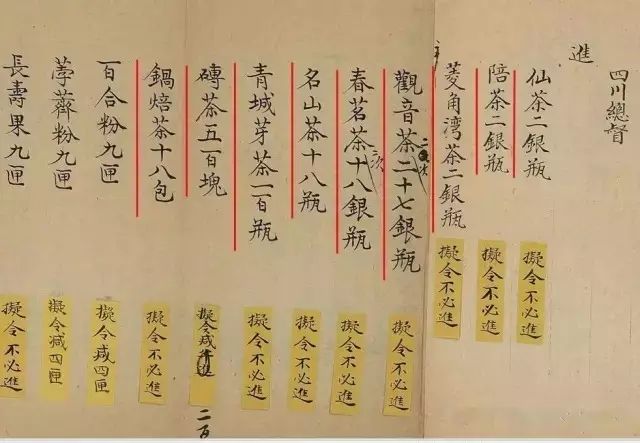 四川總督
進
仙茶二銀瓶
擬令不必進
陪茶二銀瓶
擬令不必進
菱角湾茶二銀瓶
擬令不必進
觀音茶二十七銀瓶
二次
擬令不必進
春茗茶十八銀瓶
二次
擬令不必進
名山茶十八瓶
擬令不必進
青城芽茶一百瓶
擬令不必進
磚茶五百塊
擬令減
二百
鍋焙茶十八包
擬令不必進
百合粉九匣
擬令減四匣
荸薺粉九匣
擬令减四匣
長壽果九匣
擬令不必進